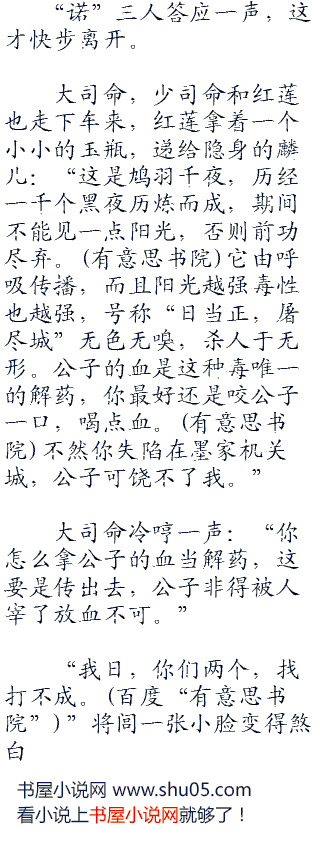 “诺”三人答应一声，这
才快步离开。
大司命，少司命和红莲
也走下车来，红莲拿着一个
小小的玉瓶，递给隐身的麟
儿：“这是鸠羽千夜，历经
一千个黑夜历炼而成，期间
不能见一点阳光，否则前功
尽弃。(有意思书院)它由呼
吸传播，而且阳光越强毒性
也越强，号称“日当正，屠
尽城”无色无嗅，杀人于无
形。公子的血是这种毒唯一
的解药，你最好还是咬公子
一口，喝点血。(有意思书
院)不然你失陷在墨家机关
城，公子可饶不了我。”
大司命冷哼一声：“你
怎么拿公子的血当解药，这
要是传出去，公子非得被人
宰了放血不可。”
“我日，你们两个，找
打不成。(百度“有意思书
院”)”将闾一张小脸变得煞
白
书屋小说网 www.shu05.com
看小说上书屋小说网就够了！